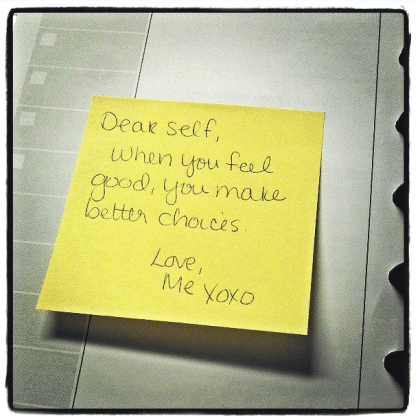 Dear self,
When you feel
good, you make
better choices.
Love,
Me xoxo